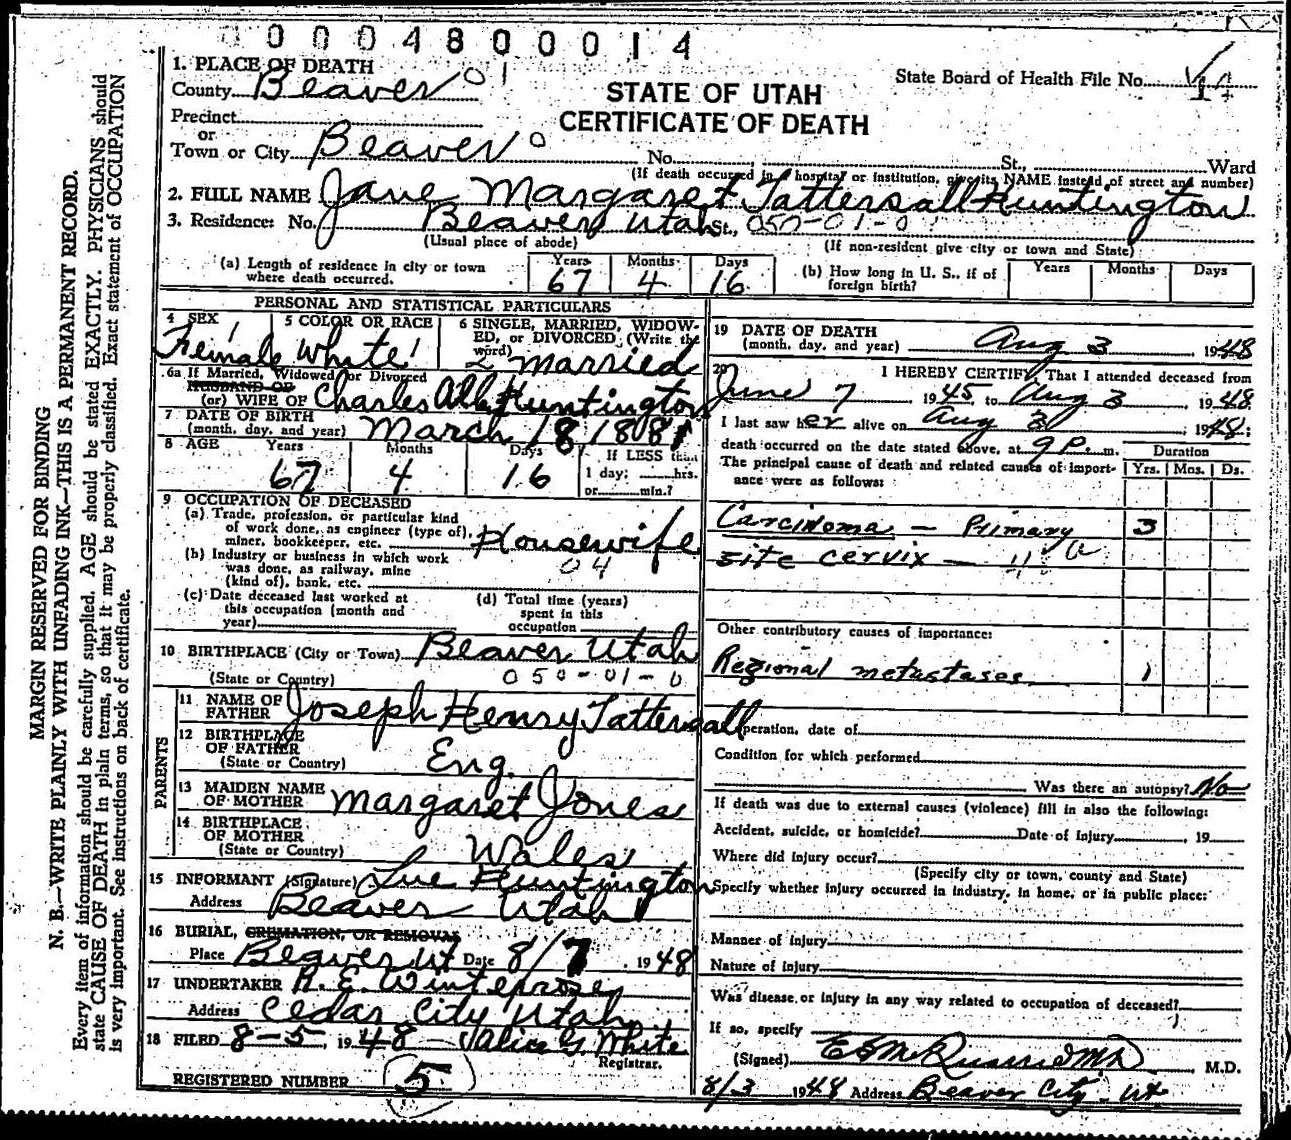 0000480 0014
1. PLACE OF DEATH
County Beaver 01
State Board of Health File No. 14
STATE OF UTAH
CERTIFICATE OF DEATH
Precinct
or
Town or City Beaver 0 No. St., Ward
(If death occurred in a hospital or institution, give its NAME instead of street and number)
2. FULL NAME Jane Margaret Tattersall Huntington
3. Residence: No. Beaver Utah St., 050-01-0
(Usual place of abode) (If non-resident give city or town and State)
(a) Length of residence in city or town where death occurred. Years 67 Months 4 Days 16
(b) How long in U. S., if of foreign birth? Years Months Days
PERSONAL AND STATISTICAL PARTICULARS
4 SEX Female 1
5 COLOR OR RACE White 1
6 SINGLE, MARRIED, WIDOWED, or DIVORCED, (Write the word) 2 married
6a If Married, Widowed or Divorced
HUSBAND OF
(or) WIFE OF Charles Huntington
7 DATE OF BIRTH
(month, day, and year) March 18 1881
8 AGE Years 67 Months 4 Days 16 If LESS than 1 day; hrs. or min.?
9 OCCUPATION OF DECEASED
(a) Trade, profession, or particular kind of work done, as engineer (type of), miner, bookkeeper, etc. Housewife
(b) Industry or business in which work was done, as railway, mine (kind of), bank, etc. 04
(c) Date deceased last worked at this occupation (month and year)
(d) Total time (years) spent in this occupation
10 BIRTHPLACE (City or Town) Beaver Utah
(State or Country) 050-01-0
PARENTS
11 NAME OF FATHER Joseph Henry Tattersall
12 BIRTHPLACE OF FATHER
(State or Country) Eng.
13 MAIDEN NAME OF MOTHER Margaret Jones
14 BIRTHPLACE OF MOTHER
(State or Country) Wales
15 INFORMANT (Signature) Lue Huntington
Address Beaver Utah
16 BURIAL, CREMATION, OR REMOVAL
Place Beaver Ut Date 8/7, 1948
17 UNDERTAKER R. E. Winterose
Address Cedar City Utah
18 FILED 8-5, 1948 Alice G. White
Registrar.
REGISTERED NUMBER 5
19 DATE OF DEATH
(month, day, and year) Aug 3, 1948
20 I HEREBY CERTIFY, That I attended deceased from
June 7 1945 to Aug 3, 1948
I last saw her alive on Aug 3, 1948;
death occurred on the date stated above, at 9 P. m.
The principal cause of death and related causes of importance were as follows:
Duration
Yrs. Mos. Ds.
Carcinoma - Primary 3
site cervix -
Other contributory causes of importance:
Regional metastases 1
Operation, date of
Condition for which performed
Was there an autopsy? No
If death was due to external causes (violence) fill in also the following:
Accident, suicide, or homicide? Date of Injury, 19
Where did injury occur?
(Specify city or town, county and State)
Specify whether injury occurred in industry, in home, or in public place:
Manner of injury
Nature of injury
Was disease or injury in any way related to occupation of deceased?
If so, specify
(Signed) M.D.
8/3 1948 Address Beaver City - Ut
MARGIN RESERVED FOR BINDING
N. B.—WRITE PLAINLY WITH UNFADING INK—THIS IS A PERMANENT RECORD.
Every item of information should be carefully supplied. AGE should be stated EXACTLY. PHYSICIANS should
state CAUSE OF DEATH in plain terms, so that it may be properly classified. Exact statement of OCCUPATION
is very important. See instructions on back of certificate.